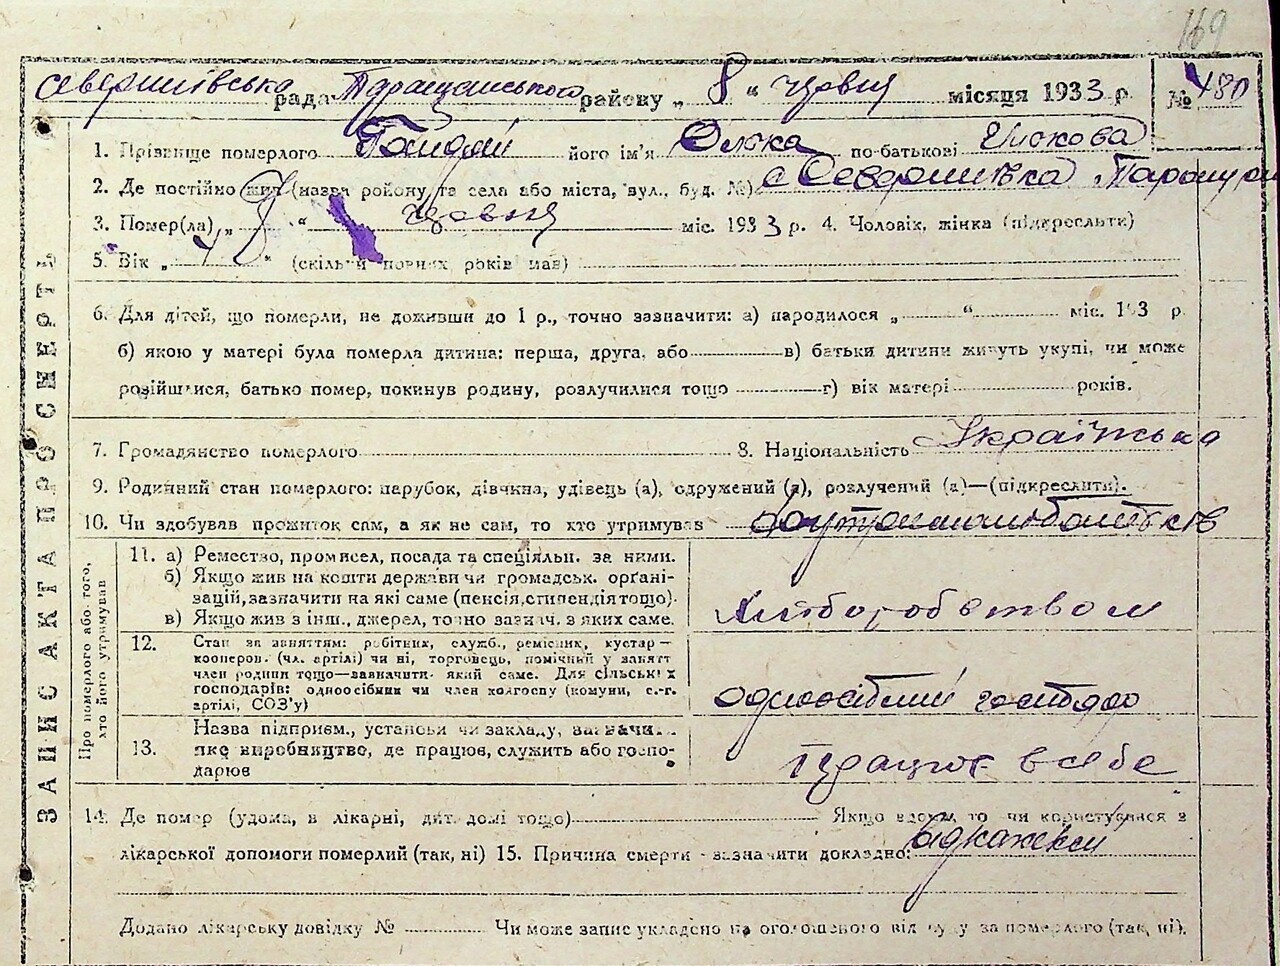 169
Северинівська рада Таращанського району „ 8 “ червня місяця 1933 р. № 480
1. Прізвище померлого його ім'я по-батькові Якова
2. Де постійно жив (назва району та села або міста, вул., буд. №) с Северинівка Таращ
3. Помер(ла) „ 8 “ червня міс. 1933 р. 4. Чоловік, жінка (підкреслити)
5. Вік „ “ (скільки повних років мав)
6. Для дітей, що померли, не доживши до 1 р., точно зазначити: а) народилося „ “ міс. 193 р.
б) якою у матері була померла дитина: перша, друга, або в) батьки дитини живуть укупі, чи може
розійшлися, батько помер, покинув родину, розлучилися тощо г) вік матері років.
7. Громадянство померлого 8. Національність Українська
9. Родинний стан померлого: парубок, дівчина, удівець (а), одружений (а), розлучений (а)—(підкреслити).
10. Чи здобував прожиток сам, а як не сам, то хто утримував
11. а) Ремество, промисел, посада та спеціяльн. за ними.
б) Якщо жив на кошти держави чи громадськ. орґані-
зацій, зазначити на які саме (пенсія, стипендія тощо).
в) Якщо жив з інш., джерел, точно зазнач. з яких саме.
Хліборобством
12. Стан за заняттям: робітник, служб., ремісник, кустар—
кооперов. (чл. артілі) чи ні, торговець, помічний у занятт
член родини тощо—зазначити який саме. Для сільських
господарів: одноосібник чи член колгоспу (комуни, с.-г.
артілі, СОЗ'у)
одноосібний господар
13. Назва підприєм., установи чи закладу, зазначи...
яке виробництво, де працює, служить або госпо-
дарює
працює в себе
14. Де помер (удома, в лікарні, дит. домі тощо) Якщо вдома, то чи користувався з
лікарської допомоги померлий (так, ні) 15. Причина смерти - зазначити докладно:
Додано лікарську довідку № Чи може запис укладено на оголошеного від суду за померлого (так, ні).
ЗАПИС АКТА ПРО СМЕРТЬ
Про померлого або того,
хто його утримував